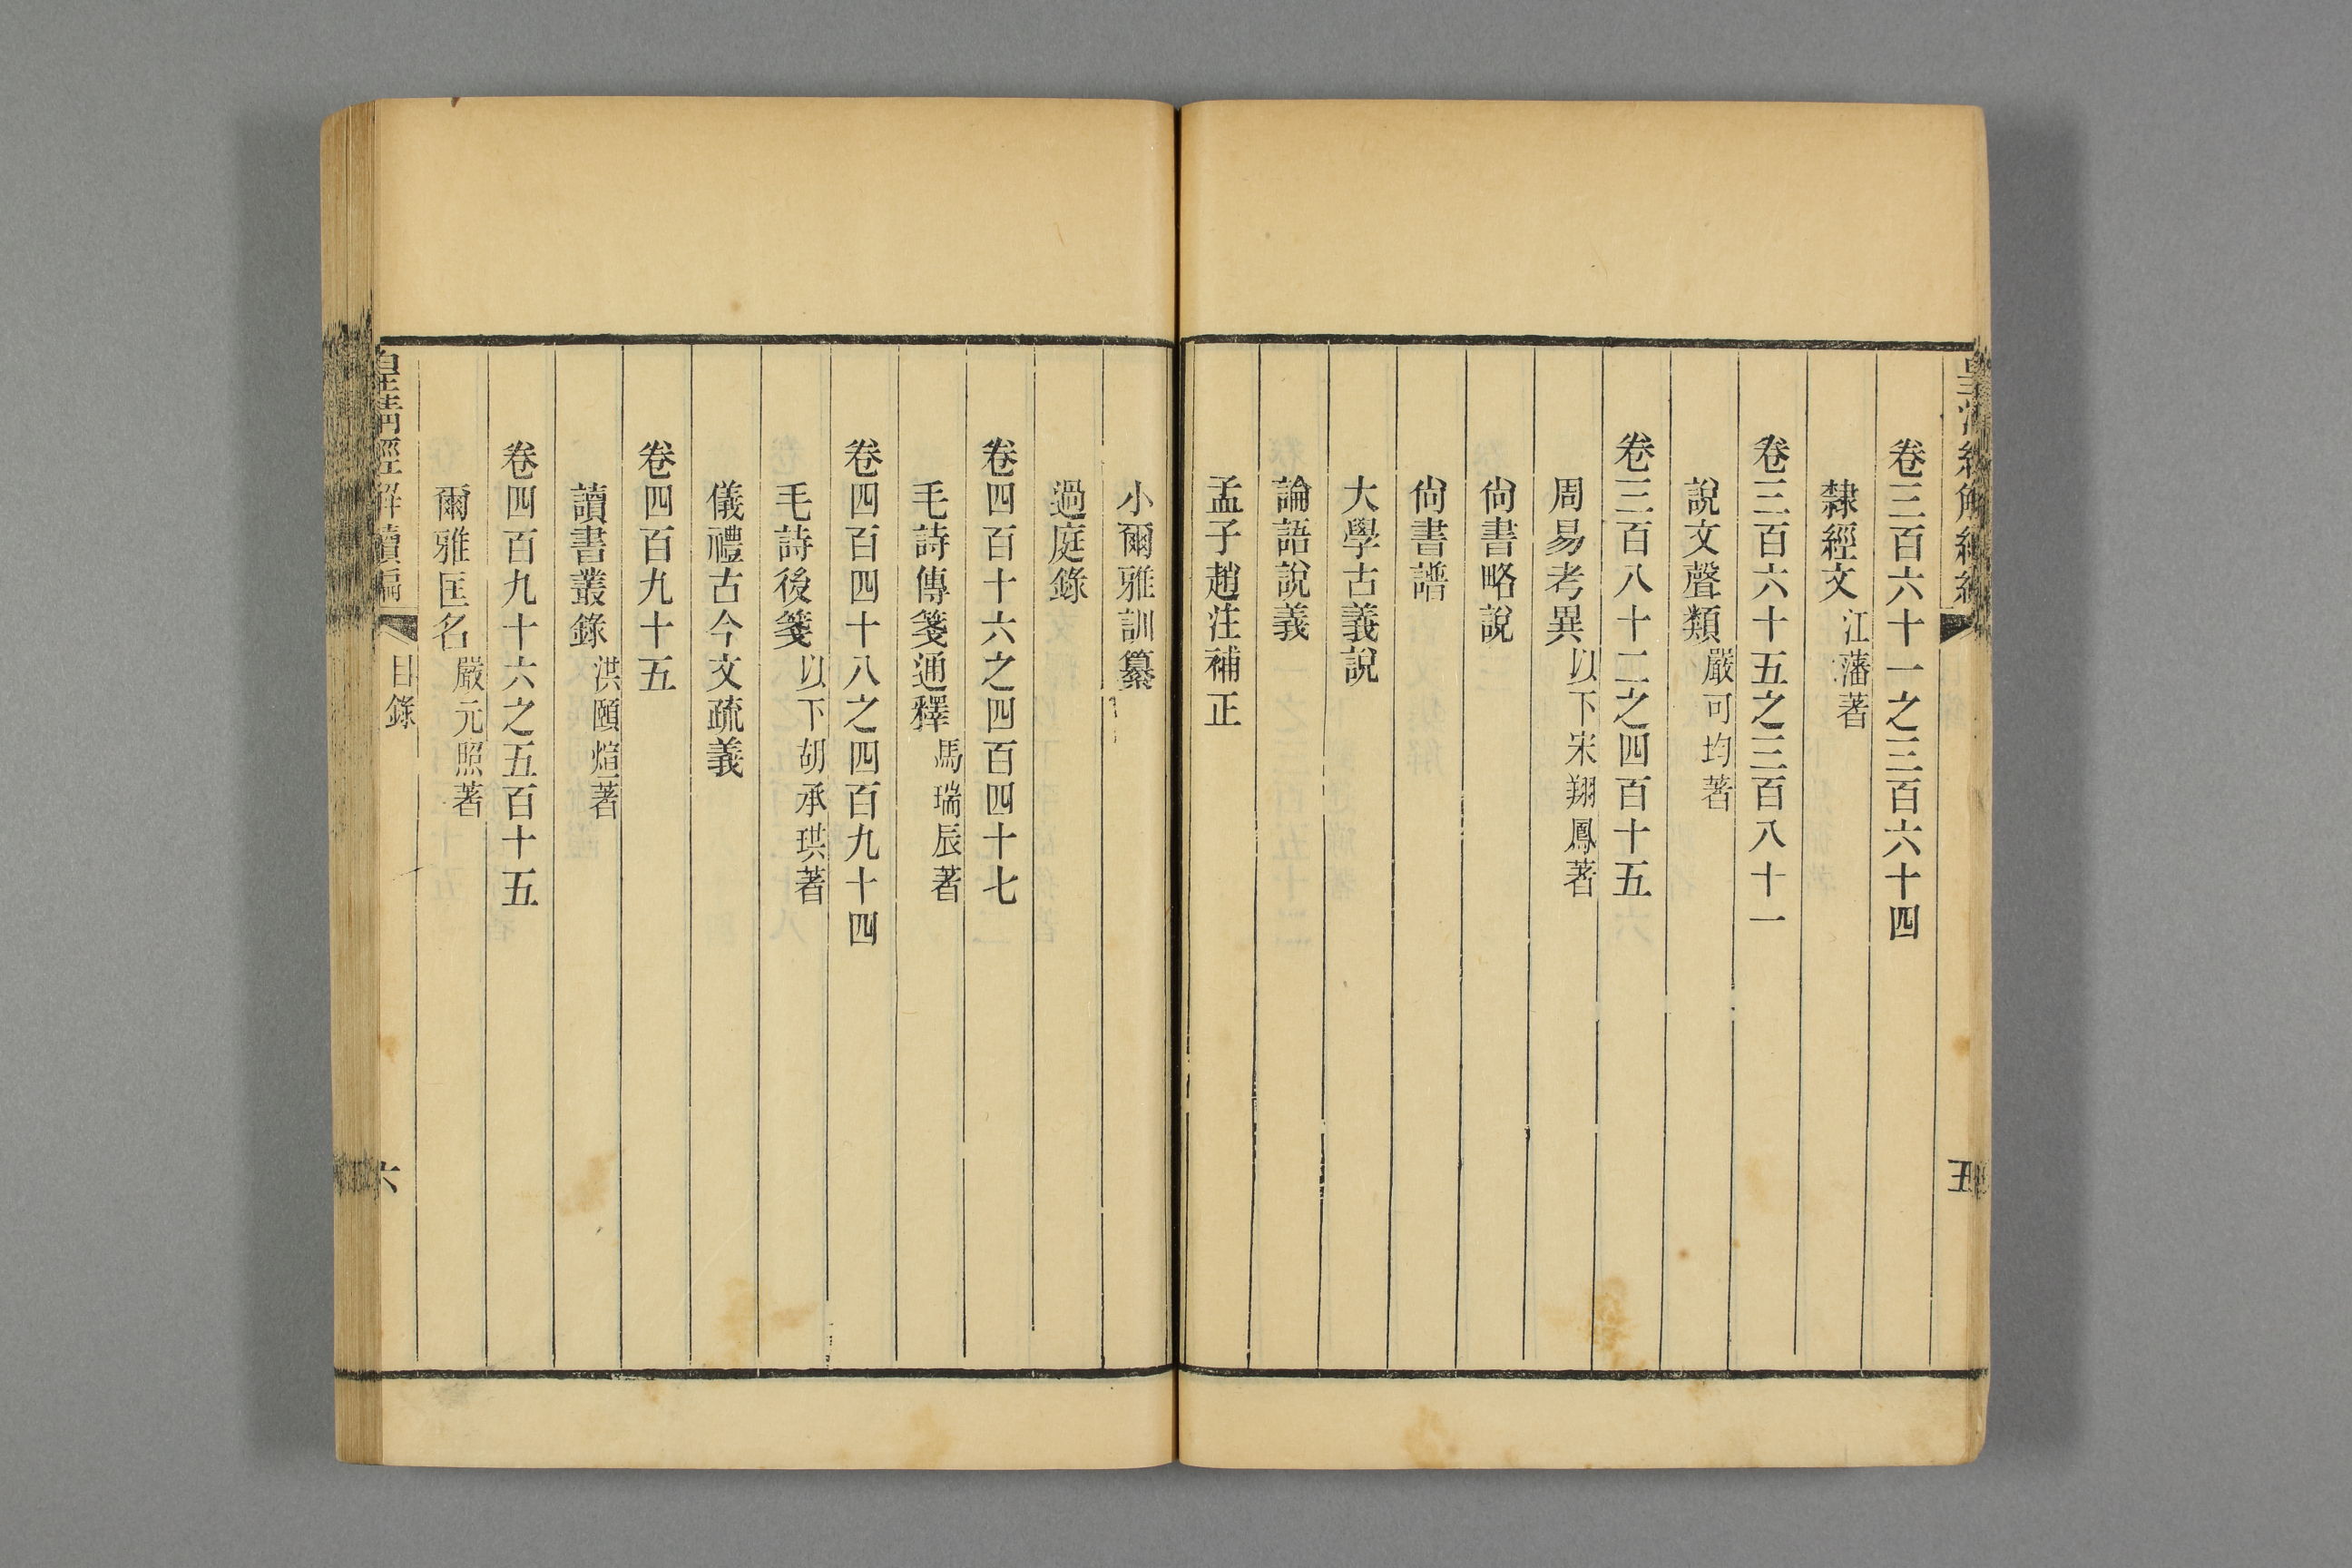 卷三百六十一之三百六十四
隸經文 江藩著
卷三百六十五之三百八十一
說文聲類 嚴可均著
卷三百八十二之四百十五
周易考異 以下宋翔鳳著
尙書略說
尙書譜
大學古義說
論語說義
孟子趙注補正
小爾雅訓纂
過庭錄
卷四百十六之四百四十七
毛詩傳箋通釋 馬瑞辰著
卷四百四十八之四百九十四
毛詩後箋 以下胡承珙著
儀禮古今文疏義
卷四百九十五
讀書叢錄 洪頤煊著
卷四百九十六之五百十五
爾雅匡名 嚴元照著
皇淸經解續編 目錄 六